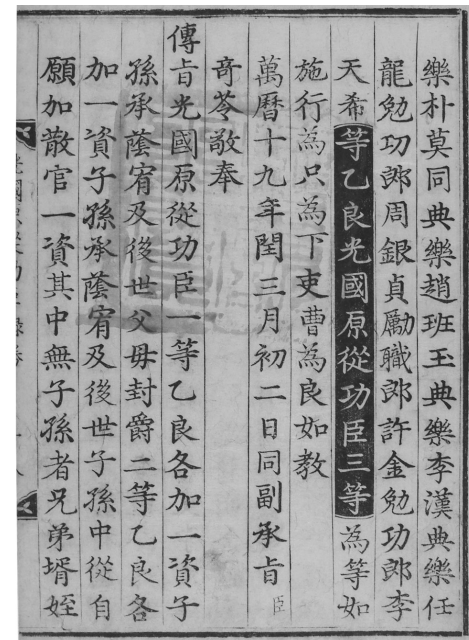 樂朴莫同典樂趙班玉典樂李漢典樂任
龍勉功郎周銀貞勵職郎許金勉功郎李
天希等乙良光國原從功臣三等為等如
施行為只為下吏曹為良如教
萬曆十九年閏三月初二日同副承旨臣
奇苓敬奉
傳旨光國原從功臣一等乙良各加一資子
孫承蔭宥及後世父母封爵二等乙良各
加一資子孫承蔭宥及後世子孫中從自
願加散官一資其中無子孫者兄弟壻姪